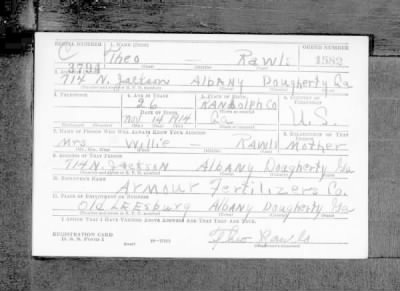 SERIAL NUMBER 1. NAME (Print) ORDER NUMBER
C 3794 Theo — Rawls 1582
714 N. Jackson Albany Dougherty Ga
4. AGE IN YEARS
26
DATE OF BIRTH
Nov 14 1914
5. PLACE OF BIRTH
Randolph Co
Ga
U.S.
7. NAME OF PERSON WHO WILL ALWAYS KNOW YOUR ADDRESS
Mrs Willie — Rawls Mother
9. ADDRESS OF THAT PERSON
714 N. Jackson Albany Dougherty Ga
10. EMPLOYER'S NAME
Armour Fertilizers Co.
11. PLACE OF EMPLOYMENT OR BUSINESS
Old Leesburg Albany Dougherty Ga
I AFFIRM THAT I HAVE VERIFIED ABOVE ANSWERS AND THAT THEY ARE TRUE.
REGISTRATION CARD
D. S. S. Form 1
Theo Rawls